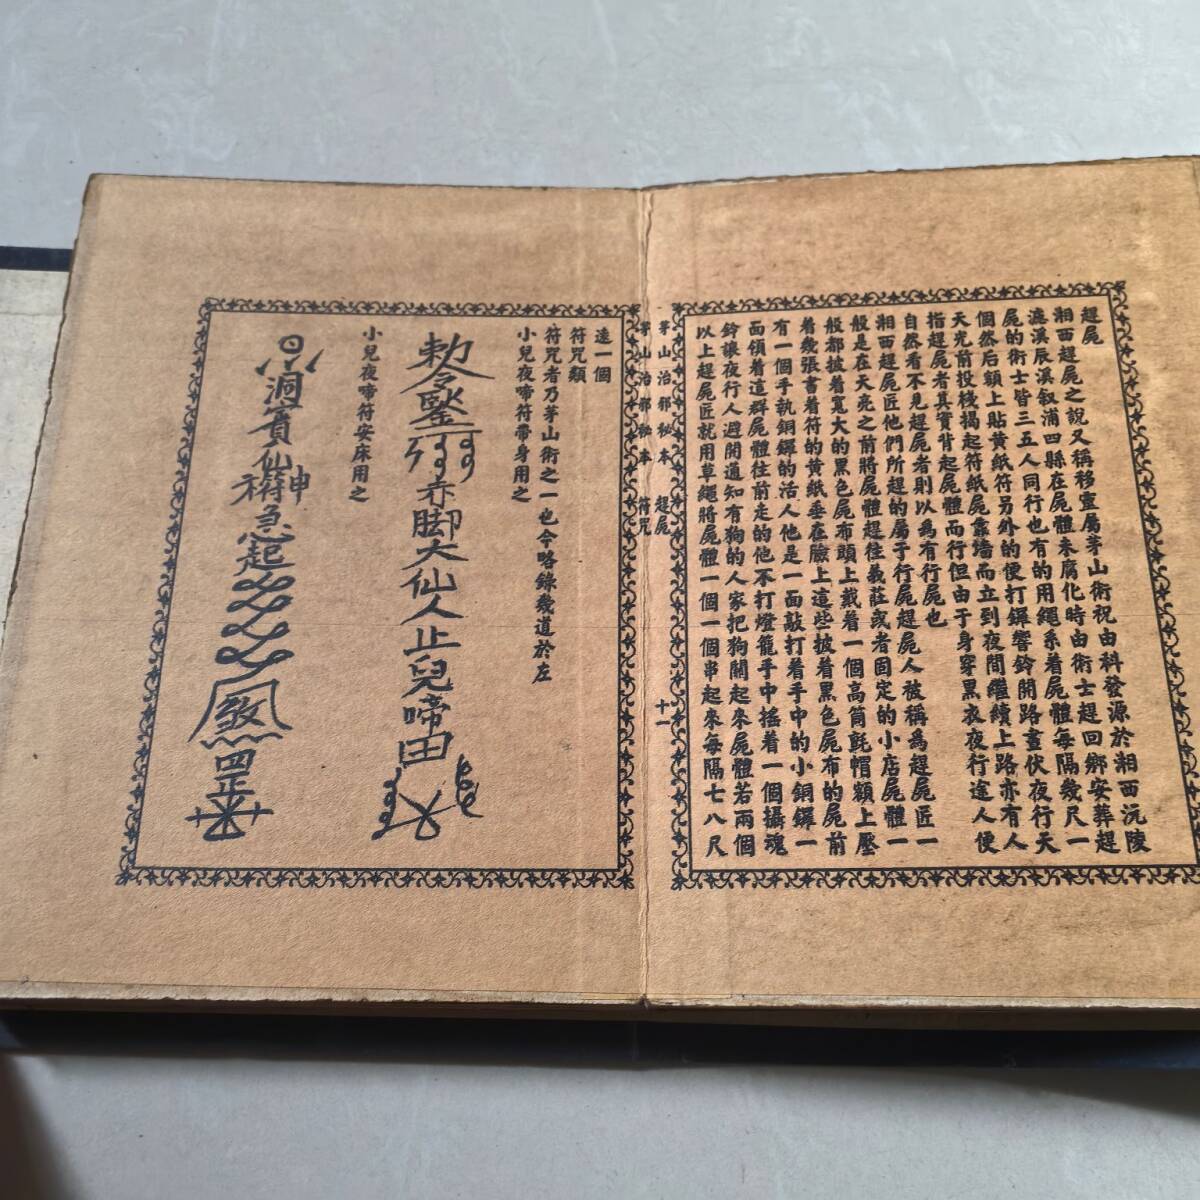 趕屍
湘西趕屍之說又稱移靈屬茅山術祝由科發源於湘西沅陵
瀘溪辰溪叙浦四縣在屍體未腐化時由術士趕回鄉安葬趕
屍的術士皆三五人同行也有的用繩系着屍體每隔幾尺一
個然后額上貼黄紙符另外的便打鑼響鈴開路晝伏夜行天
天光前投棧揭起符紙屍靠墻而立到夜間繼續上路亦有人
指趕屍者真實背起屍體而行但由于身穿黑衣夜行途人便
自然看不見趕屍者則以為有行屍也
湘西趕屍匠他們所趕的屬于行屍趕屍人被稱為趕屍匠一
般是在天亮之前將屍體趕往義莊或者固定的小店屍體一
般都披着寬大的黑色屍布頭上戴着一個高筒氈帽額上壓
着幾張書着符的黄紙垂在臉上這些披着黑色屍布的屍前
有一個手執銅鑼的活人他是一面敲打着手中的小銅鑼一
面領着這群屍體往前走的他不打燈籠手中搖着一個攝魂
鈴讓夜行人避開通知有狗的人家把狗關起來屍體若兩個
以上趕屍匠就用草繩將屍體一個一個串起來每隔七八尺
茅山治邪秘本 趕屍 十一
茅山治邪秘本 符咒
遠一個
符咒類
符咒者乃茅山術之一也今略錄幾道於左
小兒夜啼符帶身用之
勅令
赤脚大仙人止兒啼田
小兒夜啼符安床用之
洞賓仙神符急起
四正